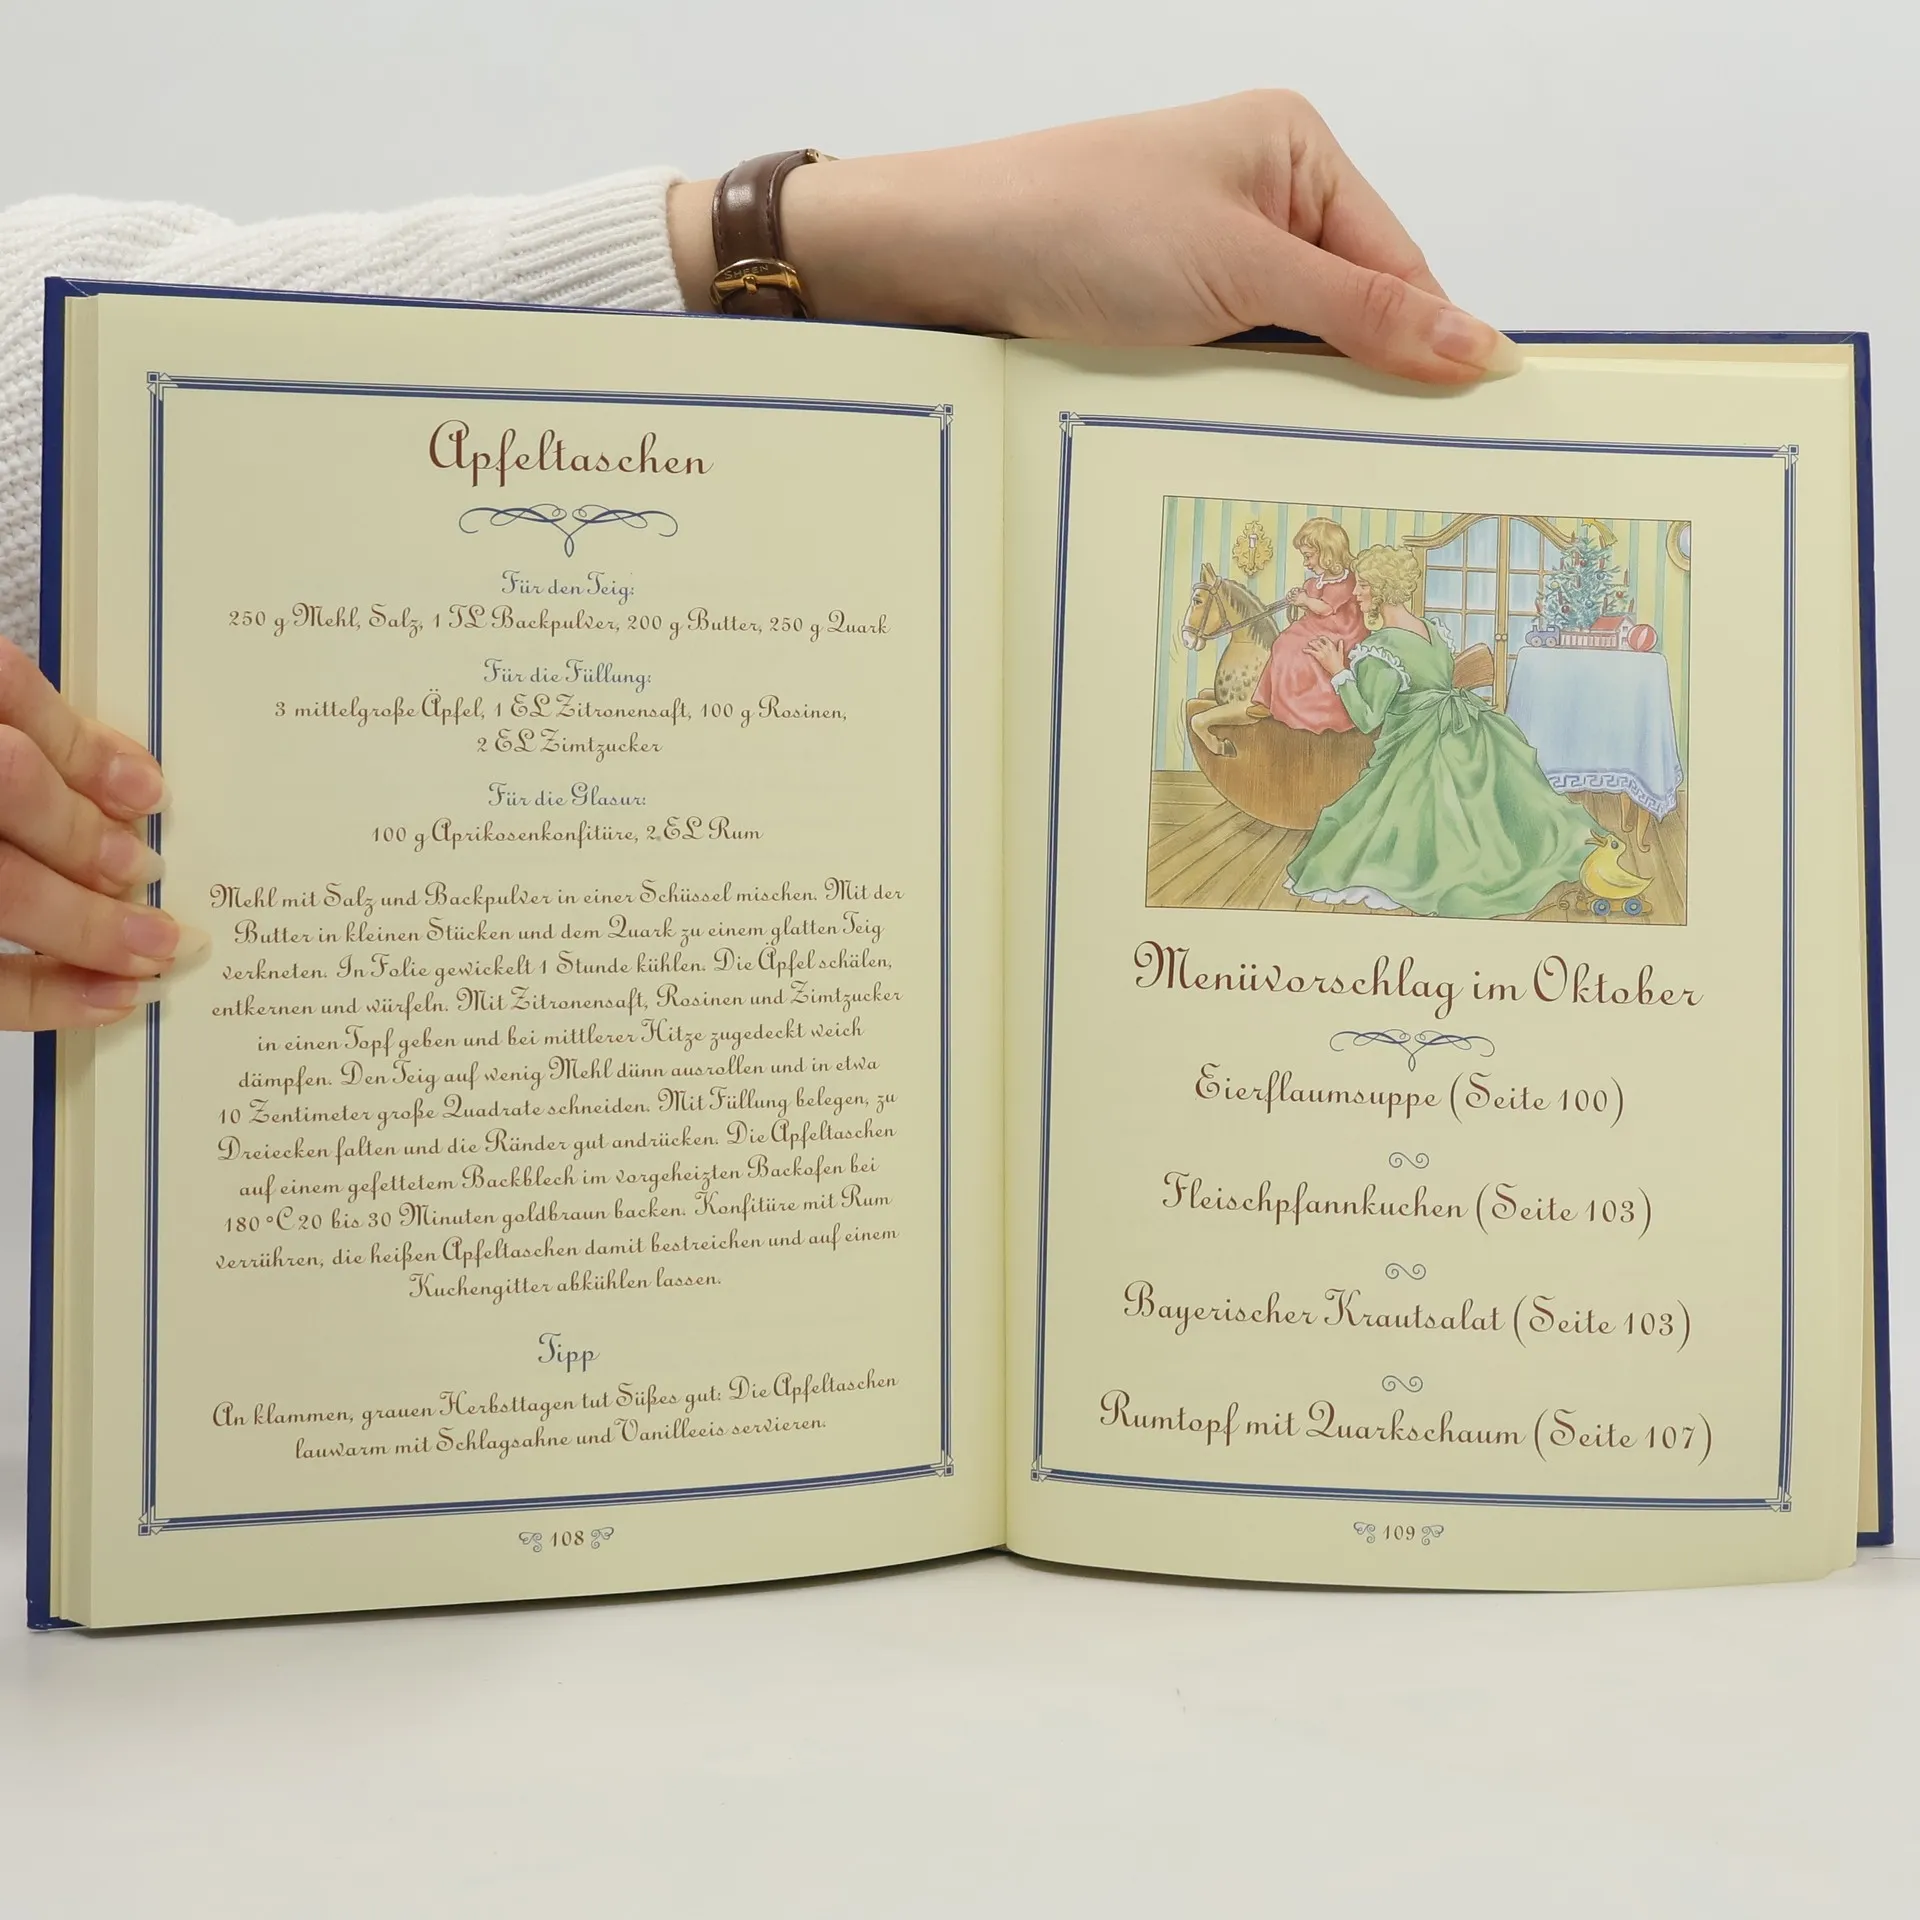 SHEEN
Apfeltaschen
Für den Teig:
250 g Mehl, Salz, 1 TL Backpulver, 200 g Butter, 250 g Quark
Für die Füllung:
3 mittelgroße Äpfel, 1 EL Zitronensaft, 100 g Rosinen,
2 EL Zimtzucker
Für die Glasur:
100 g Aprikosenkonfitüre, 2 EL Rum
Mehl mit Salz und Backpulver in einer Schüssel mischen. Mit der
Butter in kleinen Stücken und dem Quark zu einem glatten Teig
verkneten. In Folie gewickelt 1 Stunde kühlen. Die Äpfel schälen,
entkernen und würfeln. Mit Zitronensaft, Rosinen und Zimtzucker
in einen Topf geben und bei mittlerer Hitze zugedeckt weich
dämpfen. Den Teig auf wenig Mehl dünn ausrollen und in etwa
10 Zentimeter große Quadrate schneiden. Mit Füllung belegen, zu
Dreiecken falten und die Ränder gut andrücken. Die Apfeltaschen
auf einem gefettetem Backblech im vorgeheizten Backofen bei
180 °C 20 bis 30 Minuten goldbraun backen. Konfitüre mit Rum
verrühren, die heißen Apfeltaschen damit bestreichen und auf einem
Kuchengitter abkühlen lassen.
Tipp
An klammen, grauen Herbsttagen tut Süßes gut: Die Apfeltaschen
lauwarm mit Schlagsahne und Vanilleeis servieren.
108
Menüvorschlag im Oktober
Eierflaumsuppe (Seite 100)
Fleischpfannkuchen (Seite 103)
Bayerischer Krautsalat (Seite 103)
Rumtopf mit Quarkschaum (Seite 107)
109